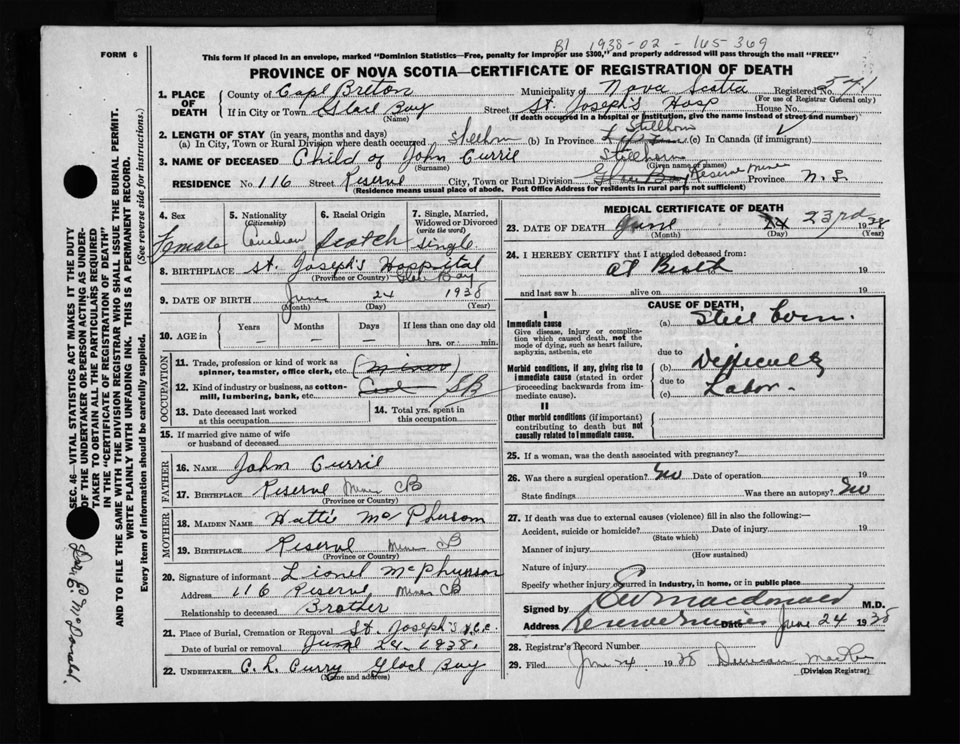 B1 1938-02-165-369
FORM 6
This form if placed in an envelope, marked "Dominion Statistics—Free, penalty for improper use $300," and properly addressed will pass through the mail "FREE"
PROVINCE OF NOVA SCOTIA—CERTIFICATE OF REGISTRATION OF DEATH
1. PLACE OF DEATH
County of Cape Breton Municipality of Nova Scotia Registered No. 571
(For use of Registrar General only)
If in City or Town Glace Bay Street St. Joseph's Hosp House No.
(Name) (If death occurred in a hospital or institution, give the name instead of street and number)
2. LENGTH OF STAY (in years, months and days) Stillborn
(a) In City, Town or Rural Division where death occurred stillborn (b) In Province (c) In Canada (if immigrant)
3. NAME OF DECEASED Child of John Currie Stillborn
(Surname) (Given name or names)
RESIDENCE No. 116 Street Reserve City, Town or Rural Division Glace Bay Reserve Mines Province N.S.
(Residence means usual place of abode. Post Office Address for residents in rural parts not sufficient)
4. Sex
Female
5. Nationality (Citizenship)
Canadian
6. Racial Origin
Scotch
7. Single, Married, Widowed or Divorced (write the word)
Single
8. BIRTHPLACE St. Joseph's Hospital
(Province or Country) Glace Bay
9. DATE OF BIRTH June 24 1938
(Month) (Day) (Year)
10. AGE in
Years Months Days If less than one day old
— — — hrs. or min.
OCCUPATION
11. Trade, profession or kind of work as spinner, teamster, office clerk, etc.
12. Kind of industry or business, as cotton-mill, lumbering, bank, etc. SB
13. Date deceased last worked at this occupation
14. Total yrs. spent in this occupation
15. If married give name of wife or husband of deceased
FATHER
16. NAME John Currie
17. BIRTHPLACE Reserve Mines CB
(Province or Country)
MOTHER
18. MAIDEN NAME Hattie
19. BIRTHPLACE Reserve Mines CB
(Province or Country)
20. Signature of informant Lionel
Address 116 Reserve Mines CB
Relationship to deceased Brother
21. Place of Burial, Cremation or Removal St. Joseph's
Date of burial or removal June 24, 1938.
22. UNDERTAKER C. L. Curry Glace Bay
(Name and address)
MEDICAL CERTIFICATE OF DEATH
23. DATE OF DEATH June 24 23rd 1938
(Month) (Day) (Year)
24. I HEREBY CERTIFY that I attended deceased from:
at Birth 19
and last saw h alive on 19
CAUSE OF DEATH
I
Immediate cause
Give disease, injury or complication which caused death, not the mode of dying, such as heart failure, asphyxia, asthenia, etc
(a) Still born.
due to
Morbid conditions, if any, giving rise to immediate cause (stated in order proceeding backwards from immediate cause).
(b) Difficult
due to
(c) Labor.
II
Other morbid conditions (if important) contributing to death but not causally related to immediate cause.
25. If a woman, was the death associated with pregnancy?
26. Was there a surgical operation? No Date of operation 19
State findings Was there an autopsy? No
27. If death was due to external causes (violence) fill in also the following:—
Accident, suicide or homicide? Date of injury 19
(State which)
Manner of injury
(How sustained)
Nature of injury
Specify whether injury occurred in industry, in home, or in public place
Signed by MacDonald M.D.
Address Reserve Mines Date June 24 1938
28. Registrar's Record Number
29. Filed June 24 1938 Duncan
(Division Registrar)
SEC. 46—VITAL STATISTICS ACT MAKES IT THE DUTY OF THE UNDERTAKER OR PERSON ACTING AS UNDERTAKER TO OBTAIN ALL THE PARTICULARS REQUIRED IN THE "CERTIFICATE OF REGISTRATION OF DEATH"
AND TO FILE THE SAME WITH THE DIVISION REGISTRAR WHO SHALL ISSUE THE BURIAL PERMIT.
WRITE PLAINLY WITH UNFADING INK. THIS IS A PERMANENT RECORD.
Every item of information should be carefully supplied. (See reverse side for instructions.)